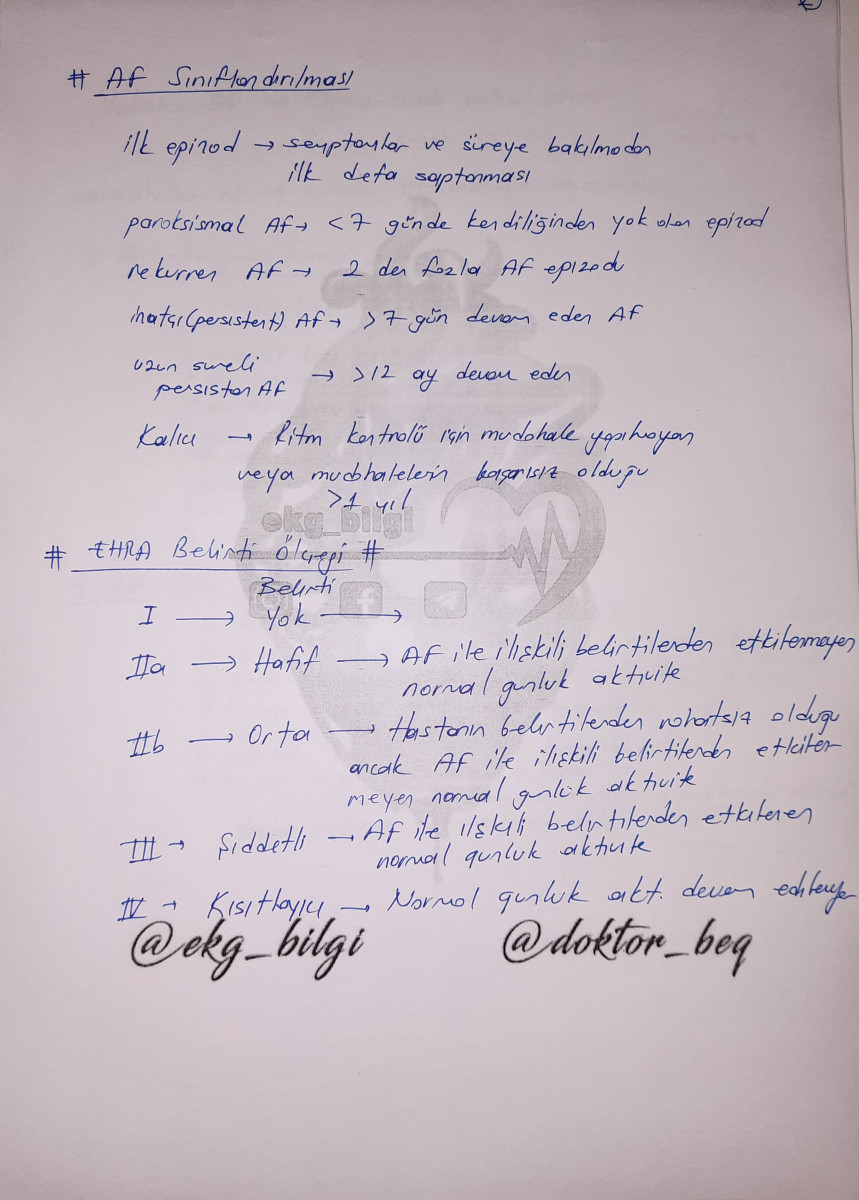 # AF Sınıflandırılması
ilk epizod → semptomlar ve süreye bakılmadan
ilk defa saptanması
paroksismal AF → <7 günde kendiliğinden yok olan epizod
rekurren AF → 2 den fazla AF epizodu
inatçı (persistent) AF → >7 gün devam eden AF
uzun sureli
persistan AF → >12 ay devam eden
Kalıcı → Ritm kontrolü için mudahale yapılmayan
veya mudahalelerin başarısız olduğu
>1 yıl
ekg_bilgi
# EHRA Belirti Ölçeği #
Belirti
I → Yok →
IIa → Hafif → AF ile ilişkili belirtilerden etkilenmeyen
normal gunluk aktivite
IIb → Orta → Hastanın belirtilerden rahatsız olduğu
ancak AF ile ilişkili belirtilerden etkilen
meyen normal gunluk aktivite
III → Şiddetli → AF ile ilişkili belirtilerden etkilenen
normal gunluk aktivite
IV → Kısıtlayıcı → Normal gunluk akt. devam
@ekg_bilgi @doktor_beq